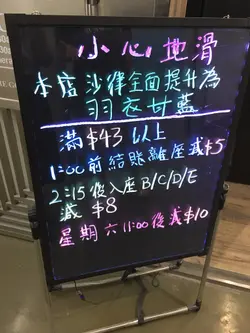 小心地滑
本店沙律全面提升為
羽衣甘藍
滿$43以上
1:00前結賬離座減$5
2:15後入座B/C/D/E
減$8
星期六11:00後減$10